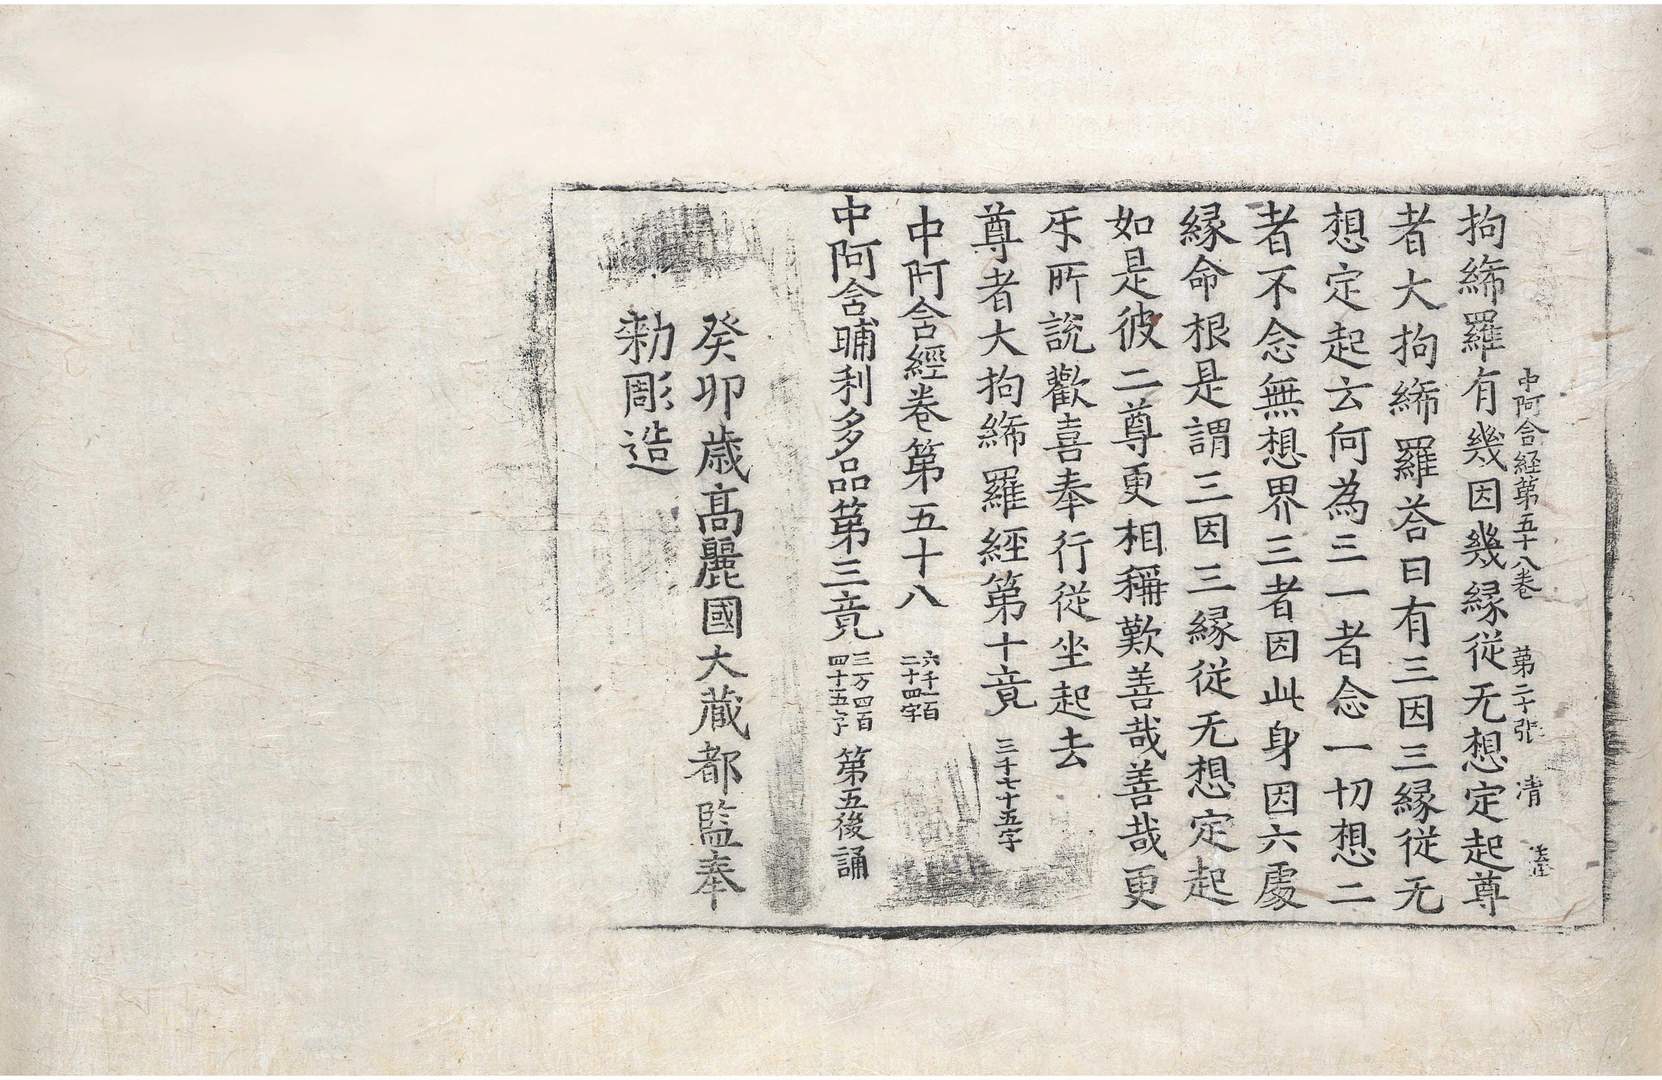 中阿含経第五十八卷　第二十張　清
拘絺羅有幾因幾縁従无想定起尊
者大拘絺羅荅曰有三因三縁従无
想定起云何為三一者念一切想二
者不念無想界三者因此身因六處
縁命根是謂三因三縁従无想定起
如是彼二尊更相稱歎善哉善哉更
㸦所說歡喜奉行従坐起去
尊者大拘絺羅經第十竟 三千七十五字
中阿含經卷第五十八 六千一百二十四字
中阿含晡利多品第三竟 三万四百四十五字 第五後誦
癸卯歳高麗國大藏都監奉
勑彫造